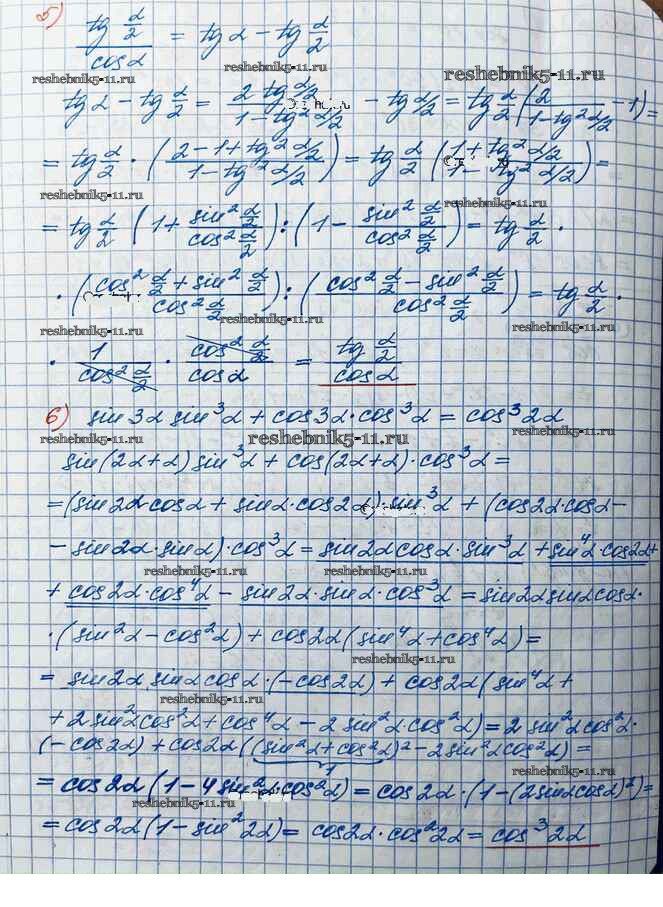 5) tg α/2 / cos α = tg α − tg α/2
reshebnik5-11.ru reshebnik5-11.ru reshebnik5-11.ru
tg α − tg α/2 = 2 tg α/2 / 1 − tg² α/2 − tg α/2 = tg α/2 (2 / 1 − tg² α/2 − 1) =
= tg α/2 · (2 − 1 + tg² α/2 / 1 − tg² α/2) = tg α/2 (1 + tg² α/2 / 1 − tg² α/2) =
reshebnik5-11.ru reshebnik5-11.ru
= tg α/2 (1 + sin² α/2 / cos² α/2) : (1 − sin² α/2 / cos² α/2) = tg α/2 ·
· (cos² α/2 + sin² α/2 / cos² α/2) : (cos² α/2 − sin² α/2 / cos² α/2) = tg α/2 ·
reshebnik5-11.ru reshebnik5-11.ru
· 1 / cos² α/2 · cos² α/2 / cos α = tg α/2 / cos α
6) sin 3α sin³α + cos 3α · cos³α = cos³ 2α
reshebnik5-11.ru reshebnik5-11.ru
sin(2α + α) sin³α + cos(2α + α) · cos³α =
= (sin 2α · cos α + sin α · cos 2α) · sin³α + (cos 2α · cos α −
− sin 2α · sin α) · cos³α = sin 2α cos α · sin³α + sin⁴α · cos 2α +
reshebnik5-11.ru reshebnik5-11.ru
+ cos 2α · cos⁴α − sin 2α · sin α · cos³α = sin 2α sin α cos α ·
· (sin²α − cos²α) + cos 2α (sin⁴α + cos⁴α) =
reshebnik5-11.ru
= sin 2α sin α cos α · (−cos 2α) + cos 2α (sin⁴α +
reshebnik5-11.ru
+ 2 sin²α cos²α + cos⁴α − 2 sin²α cos²α) = 2 sin²α cos²α ·
(−cos 2α) + cos 2α ((sin²α + cos²α)² − 2 sin²α cos²α) =
1
reshebnik5-11.ru
= cos 2α (1 − 4 sin²α cos²α) = cos 2α · (1 − (2 sin α cos α)²) =
= cos 2α (1 − sin² 2α) = cos 2α · cos² 2α = cos³ 2α
reshebnik5-11.ru reshebnik5-11.ru